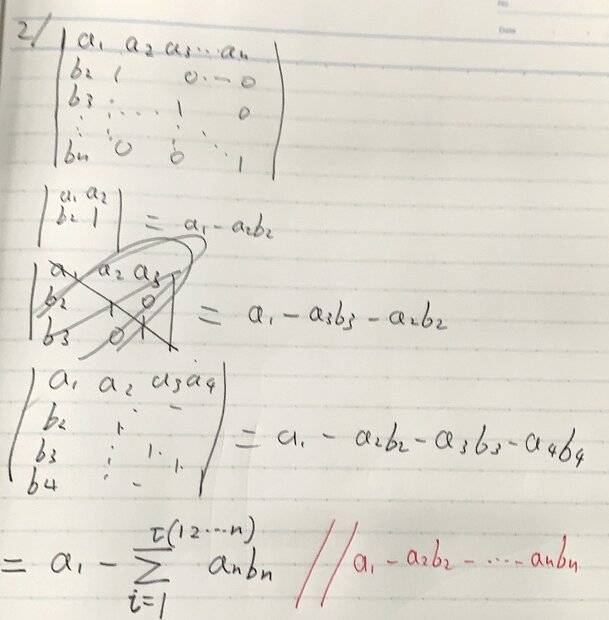 2/
a₁ a₂ a₃…an
b₂ 1 0 … 0
b₃ : … 1 0
: : : ⋱
bn 0 0 1
a₁ a₂
b₂ 1 = a₁ - a₂b₂
a₁ a₂ a₃
b₂ 1 0 = a₁ - a₃b₃ - a₂b₂
b₃ 0 1
a₁ a₂ a₃ a₄
b₂ 1
b₃ : 1. = a₁ - a₂b₂ - a₃b₃ - a₄b₄
b₄
τ(1 2 … n)
= a₁ - Σ anbn // a₁ - a₂b₂ - … anbn
i=1